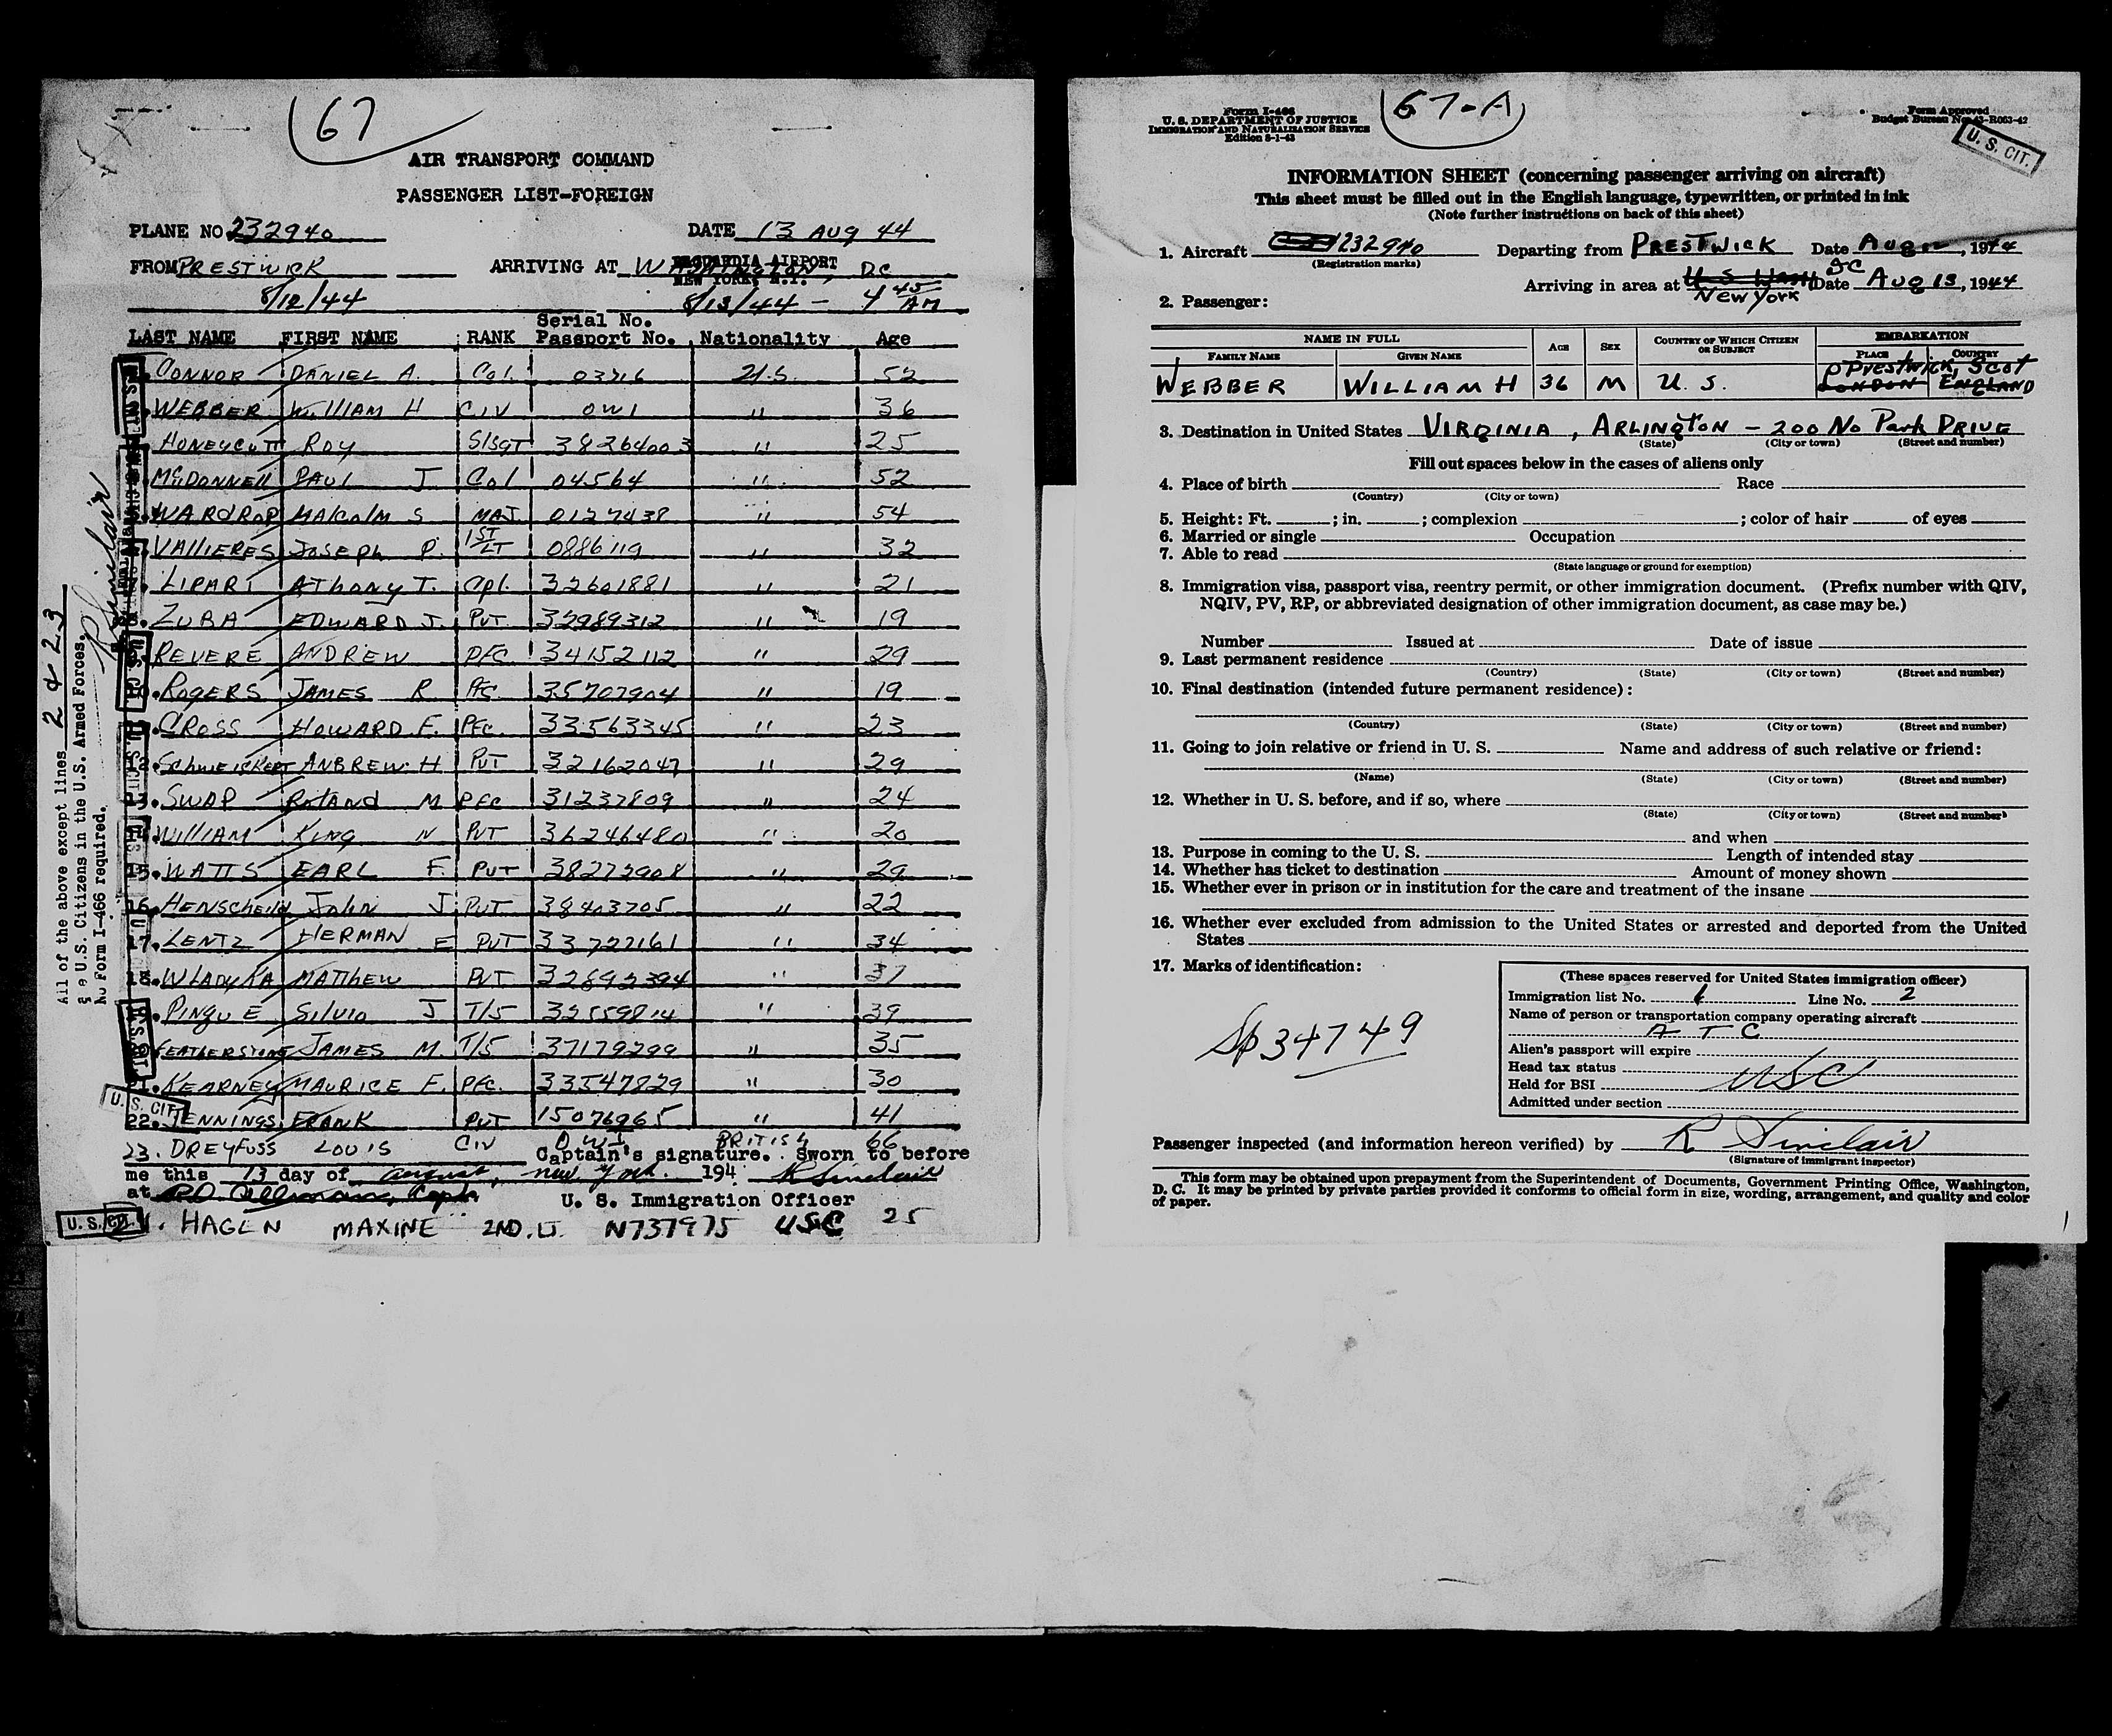 67
AIR TRANSPORT COMMAND
PASSENGER LIST-FOREIGN
PLANE NO 232940 DATE 13 AUG 44
FROM PRESTWICK ARRIVING AT WASHINGTON, DC
LAGUARDIA AIRPORT
NEW YORK, N.Y.
8/12/44 8/13/44 - 4 45 AM
LAST NAME FIRST NAME RANK Serial No. Passport No. Nationality Age
CONNOR DANIEL A. Col. 03716 U.S. 52
2. WEBBER WILLIAM H CIV OWI " 36
HONEYCUTT ROY S/SGT 38264003 " 25
McDONNELL PAUL J Col 04564 " 52
WARDROP MALCOLM S MAJ. 0127438 " 54
VALLIERES JOSEPH P. 1ST LT 0886119 " 32
LIPARI ATHONY T. Cpl. 32601881 " 21
8. ZUBA EDWARD J. PVT 32989312 " 19
REVERE ANDREW PFC 34152112 " 29
10. ROGERS JAMES R PFC. 35707904 " 19
CROSS HOWARD F. PFC. 33563345 " 23
12. SCHWEICKERT ANDREW H PVT 32162047 " 29
13. SWAP ROLAND M PFC 31237809 " 24
14. WILLIAM KING N PVT 36246480 " 20
15. WATTS EARL F. PVT 38272908 " 29
16. HENSCHEILD JOHN J. PVT 38403705 " 22
17. LENTZ HERMAN E PVT 33727161 " 34
18. WLADYKA MATTHEW PVT 32892394 " 37
PINGUE SILVIO J T/5 32559814 " 39
20. FEATHERSTONE JAMES M. T/5 37179299 " 35
21. KEARNEY MAURICE F. PFC. 33547829 " 30
22. JENNINGS FRANK PVT 15076965 " 41
23. DREYFUSS LOUIS CIV OWI BRITISH 66
Captain's signature. Sworn to before
me this 13 day of August, New York 194 R Sinclair
at
U. S. Immigration Officer
24. HAGEN MAXINE 2ND. LT. N737975 USC 25
U. S. CIT.
U. S. CIT.
All of the above except lines 2 4 23
are U.S. Citizens in the U.S. Armed Forces.
No Form I-466 required.
R Sinclair
67-A
Form I-466
U. S. DEPARTMENT OF JUSTICE
IMMIGRATION AND NATURALIZATION SERVICE
Edition 8-1-43
Form Approved
Budget Bureau No. 43-R063-42
U. S. CIT.
INFORMATION SHEET (concerning passenger arriving on aircraft)
This sheet must be filled out in the English language, typewritten, or printed in ink
(Note further instructions on back of this sheet)
1. Aircraft 232940 Departing from PRESTWICK Date Aug 12, 1944
(Registration marks)
Arriving in area at U S Wash DC New York Date Aug 13, 1944
2. Passenger:
NAME IN FULL AGE SEX COUNTRY OF WHICH CITIZEN OR SUBJECT EMBARKATION
FAMILY NAME GIVEN NAME PLACE COUNTRY
Prestwick, Scot
WEBBER WILLIAM H 36 M U. S. LONDON ENGLAND
3. Destination in United States VIRGINIA, ARLINGTON - 200 No Park DRIVE
(State) (City or town) (Street and number)
Fill out spaces below in the cases of aliens only
4. Place of birth Race
(Country) (City or town)
5. Height: Ft. ; in. ; complexion ; color of hair of eyes
6. Married or single Occupation
7. Able to read
(State language or ground for exemption)
8. Immigration visa, passport visa, reentry permit, or other immigration document. (Prefix number with QIV,
NQIV, PV, RP, or abbreviated designation of other immigration document, as case may be.)
Number Issued at Date of issue
9. Last permanent residence
(Country) (State) (City or town) (Street and number)
10. Final destination (intended future permanent residence):
(Country) (State) (City or town) (Street and number)
11. Going to join relative or friend in U. S. Name and address of such relative or friend:
(Name) (State) (City or town) (Street and number)
12. Whether in U. S. before, and if so, where
(State) (City or town) (Street and number)
and when
13. Purpose in coming to the U. S. Length of intended stay
14. Whether has ticket to destination Amount of money shown
15. Whether ever in prison or in institution for the care and treatment of the insane
16. Whether ever excluded from admission to the United States or arrested and deported from the United
States
17. Marks of identification:
Sp 34749
(These spaces reserved for United States immigration officer)
Immigration list No. 1 Line No. 2
Name of person or transportation company operating aircraft
A T C
Alien's passport will expire
Head tax status
Held for BSI USC
Admitted under section
Passenger inspected (and information hereon verified) by R Sinclair
(Signature of immigrant inspector)
This form may be obtained upon prepayment from the Superintendent of Documents, Government Printing Office, Washington,
D. C. It may be printed by private parties provided it conforms to official form in size, wording, arrangement, and quality and color
of paper.